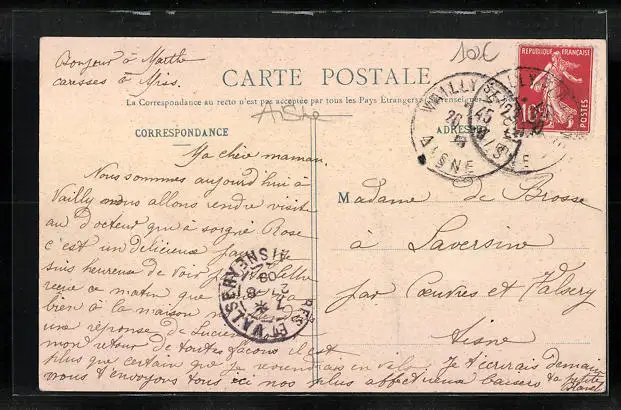 Bonjour à Marthe
caresses à Miss.
10€
CARTE POSTALE
La Correspondance au recto n'est pas acceptée par tous les Pays Étrangers
Aisne
CORRESPONDANCE
ADRESSE
REPUBLIQUE FRANÇAISE
10
POSTES
VAILLY
AISNE
Ma chère maman.
Nous sommes aujourd'hui à
Vailly nous allons rendre visite
au docteur qui a soigné Rose
c'est un délicieux
suis heureuse de voir lettre
reçue ce matin que
bien à la maison
une réponse de Lucien
mon retour de toutes façons il est
plus que certain que je reviendrai en vélo. Je t'écrirai demain
nous t'envoyons tous ici nos plus affectueux baisers ta petite
Madame de Brosse
à Laversine
par Cœuvres et Valsery
Aisne
ET VALSERY
AISNE
08